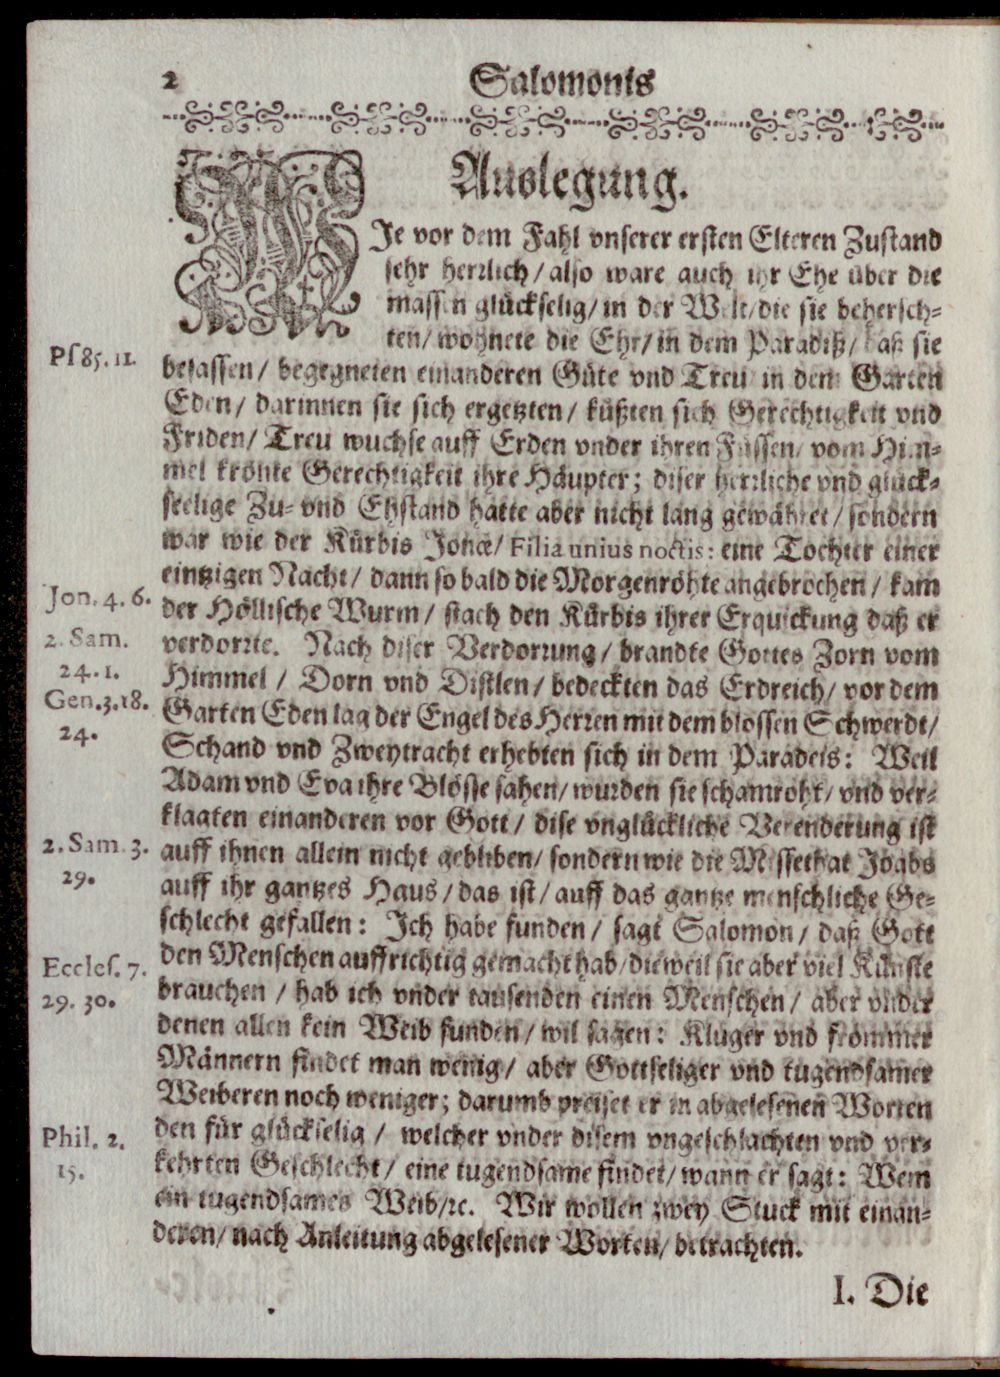 2
Salomonis
Auslegung.
WIe vor dem Fahl vnserer ersten Elteren Zustand
sehr herrlich / also ware auch ihr Ehe über die
massen glückselig / in der Welt / die sie behersch-
ten / wohnete die Ehr / in dem Paradiß / daß sie
Ps 85. 11.
besassen / begegneten einanderen Güte vnd Treu in dem Garten
Eden / darinnen sie sich ergetzten / küßten sich Gerechtigkeit vnd
Friden / Treu wuchse auff Erden vnder ihren Füssen / vom Him-
mel krönte Gerechtigkeit ihre Häupter; diser herrliche vnd glück-
seelige Zu- vnd Ehstand hatte aber nicht lang gewähret / sondern
war wie der Kürbis Jonæ / Filia unius noctis: eine Tochter einer
eintzigen Nacht / dann so bald die Morgenröhte angebrochen / kam
Jon. 4. 6.
der Höllische Wurm / stach den Kürbis ihrer Erquickung daß er
2. Sam.
verdorrte. Nach diser Verdorrung / brandte Gottes Zorn vom
24. 1.
Himmel / Dorn vnd Distlen / bedeckten das Erdreich / vor dem
Gen. 3. 18.
Garten Eden lag der Engel des Herren mit dem blossen Schwerdt /
24.
Schand vnd Zweytracht erhebten sich in dem Paradeis: Weil
Adam vnd Eva ihre Blösse sahen / wurden sie schamroht / vnd ver-
klagten einanderen vor Gott / dise vnglückliche Verenderung ist
2. Sam. 3.
auff ihnen allein nicht gebliben / sondern wie die Missethat Joabs
29.
auff ihr gantzes Haus / das ist / auff das gantze menschliche Ge-
schlecht gefallen: Ich habe funden / sagt Salomon / daß Gott
Eccles. 7.
den Menschen auffrichtig gemacht hab / dieweil sie aber viel Künste
29. 30.
brauchen / hab ich vnder tausenden einen Menschen / aber vnder
denen allen kein Weib funden / wil sagen: Kluger vnd frommer
Männern findet man wenig / aber Gottseliger vnd tugendsamer
Weiberen noch weniger; darumb preiset er in abgelesenen Worten
Phil. 2.
den für glückselig / welcher vnder disem vngeschlachten vnd ver-
15.
kehrten Geschlecht / eine tugendsame findet / wann er sagt: Wem
ein tugendsames Weib / ꝛc. Wir wollen zwey Stuck mit einan-
deren / nach Anleitung abgelesener Worten / betrachten.
I. Die